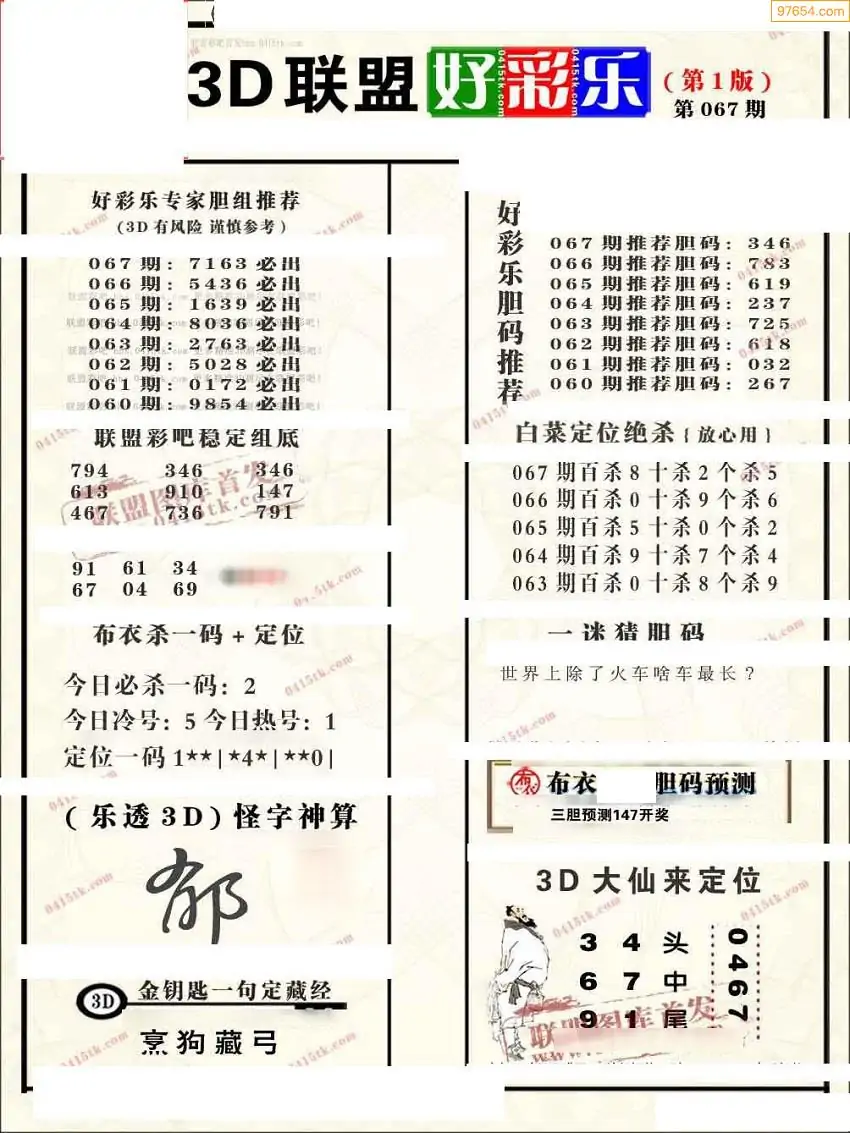 97654.com
3D联盟好彩乐
(第1版)
第067期
好彩乐专家胆组推荐
(3D有风险 谨慎参考)
067期: 7163必出
066期: 5436必出
065期: 1639必出
064期: 8036必出
063期: 2763必出
062期: 5028必出
061期: 0172必出
060期: 9854必出
联盟彩吧稳定组底
794 346 346
613 910 147
467 736 791
91 61 34
67 04 69
布衣杀一码+定位
今日必杀一码: 2
今日冷号: 5 今日热号: 1
定位一码1**|*4*|**0|
(乐透3D)怪字神算
郁
3D 金钥匙一句定藏经
烹狗藏弓
好彩乐胆码推荐
067期推荐胆码: 346
066期推荐胆码: 783
065期推荐胆码: 619
064期推荐胆码: 237
063期推荐胆码: 725
062期推荐胆码: 618
061期推荐胆码: 032
060期推荐胆码: 267
白菜定位绝杀{放心用}
067期百杀8十杀2个杀5
066期百杀0十杀9个杀6
065期百杀5十杀0个杀2
064期百杀9十杀7个杀4
063期百杀0十杀8个杀9
一迷猜胆码
世界上除了火车啥车最长?
布衣 胆码预测
三胆预测147开奖
3D大仙来定位
3 4 头
6 7 中
9 1 尾
0467
联盟图库首发
0415tk.com